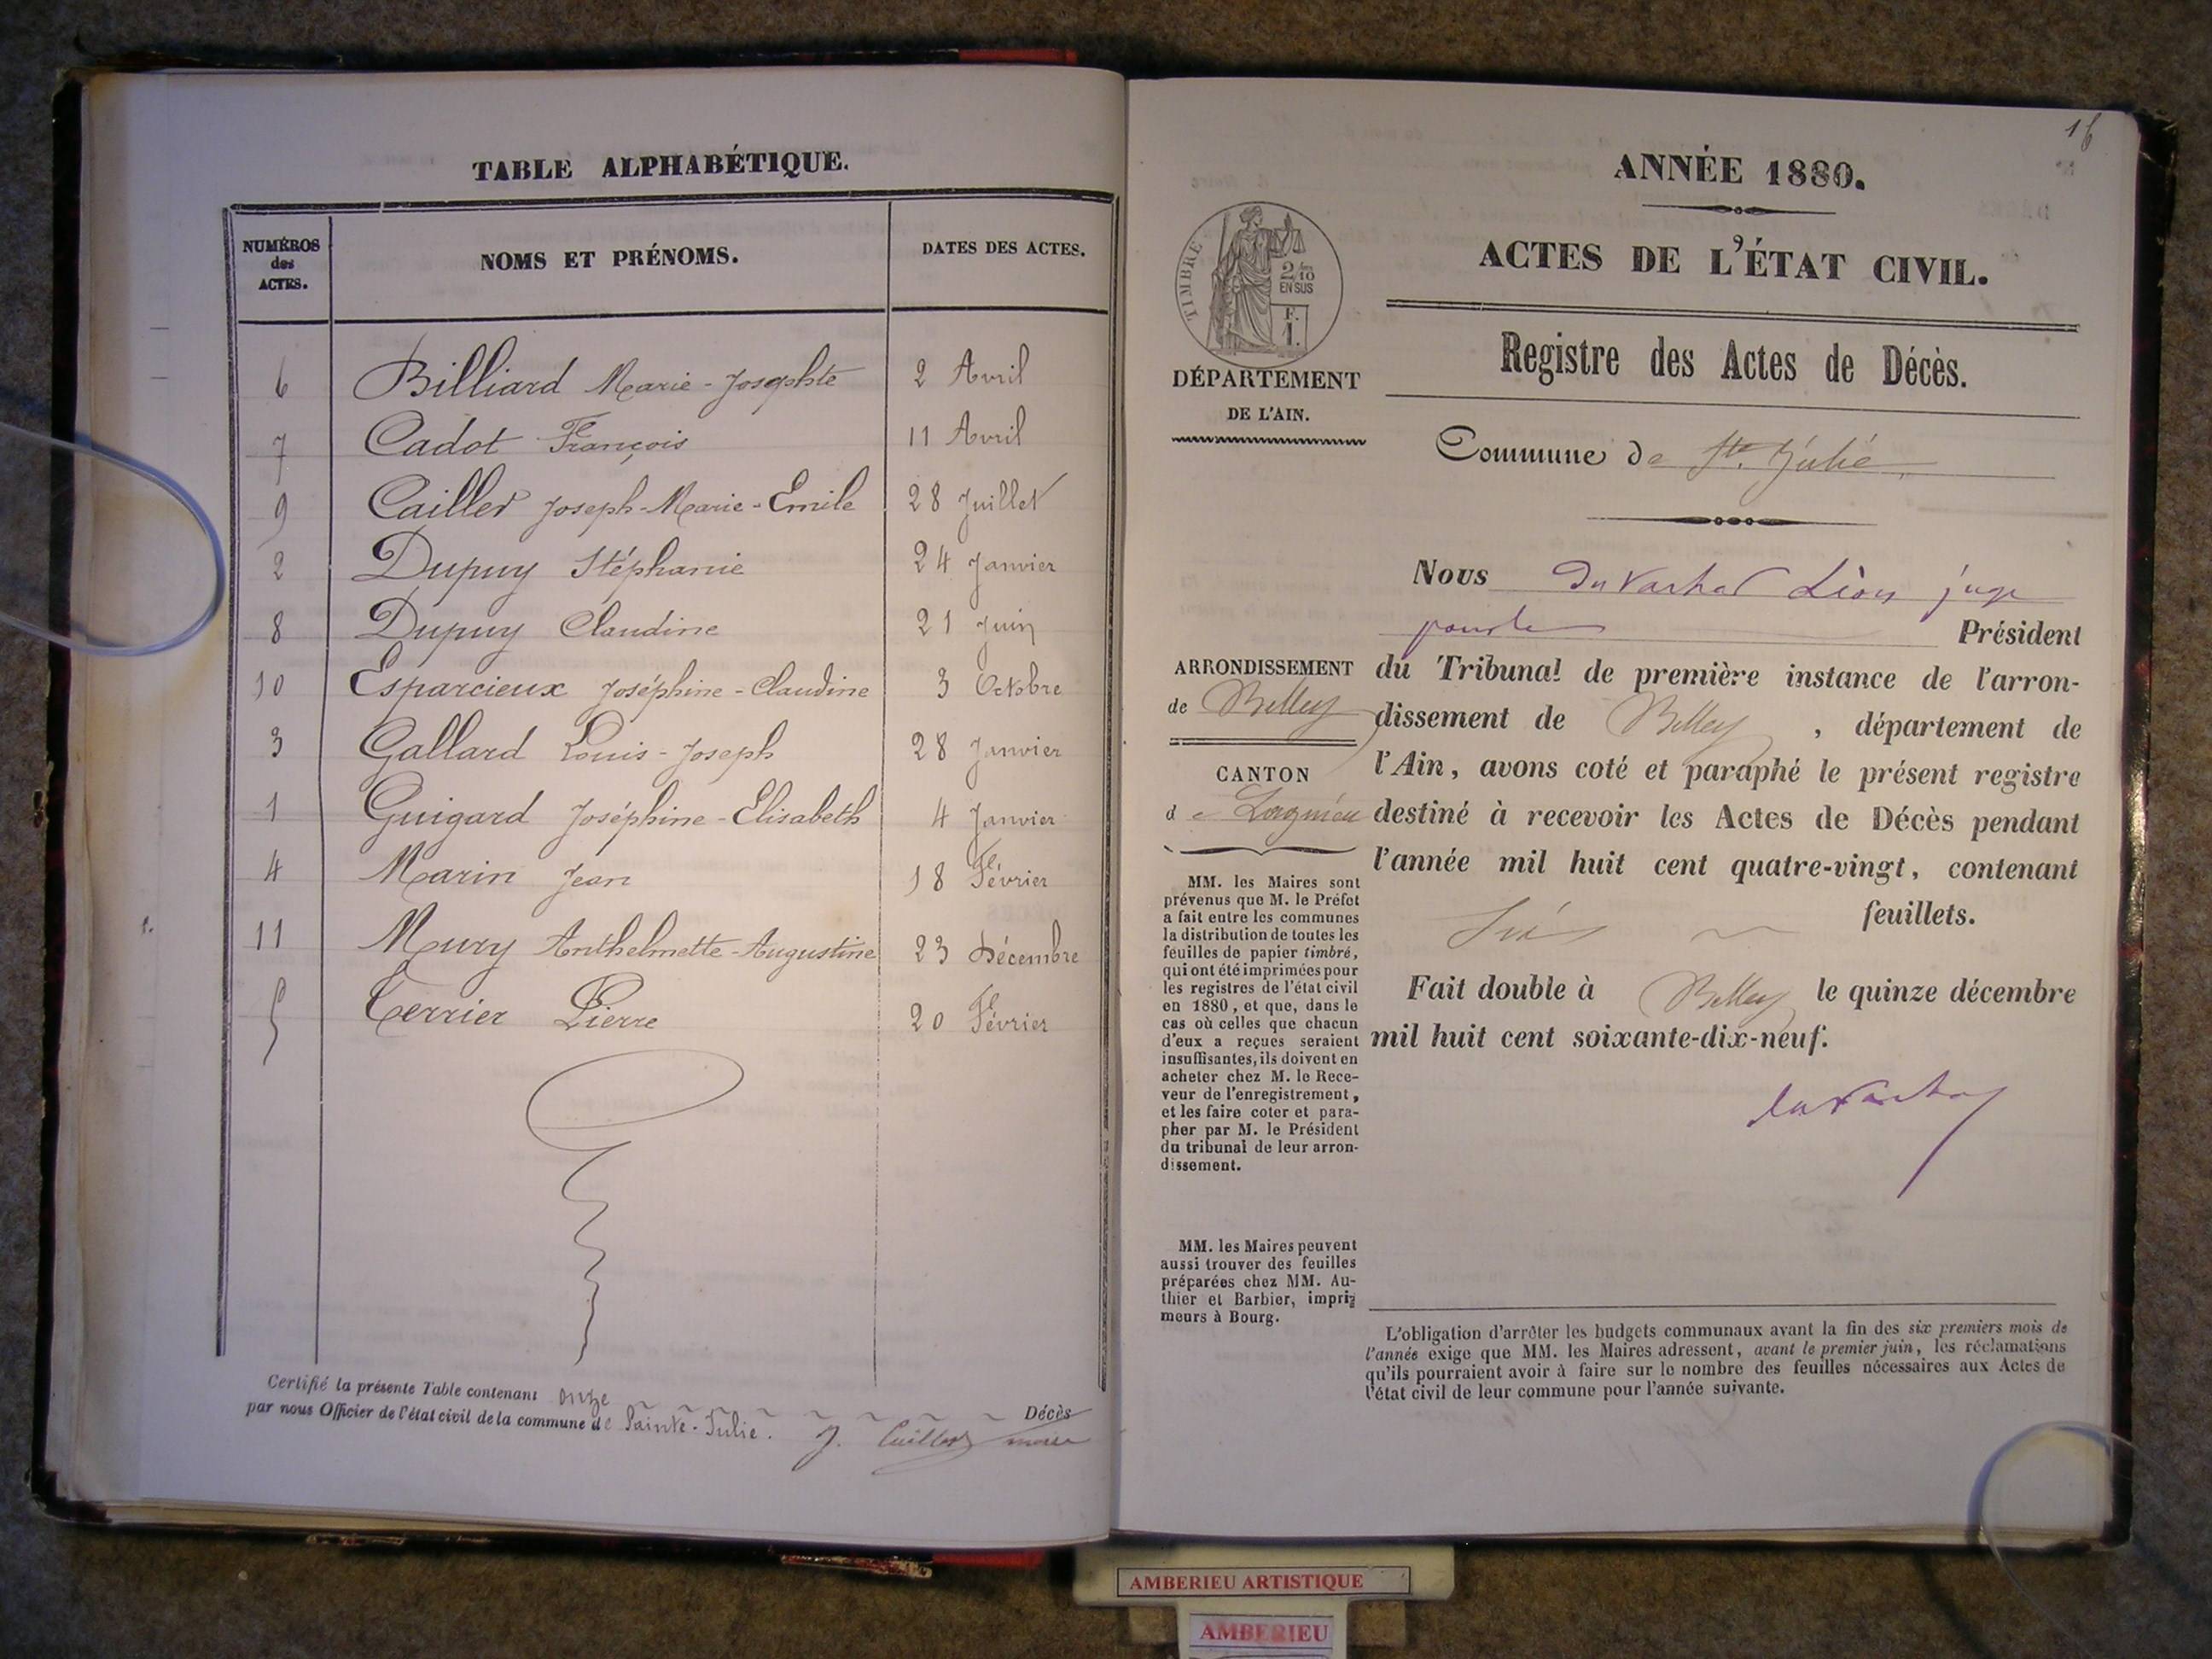 TABLE ALPHABÉTIQUE.
NUMÉROS
des
ACTES.
NOMS ET PRÉNOMS.
DATES DES ACTES.
6 Billiard Marie-Josephte 2 Avril
7 Cadot François 11 Avril
9 Cailler Joseph-Marie-Emile 28 Juillet
2 Dupuy Stéphanie 24 Janvier
8 Dupuy Claudine 21 Juin
10 Esparcieux Joséphine-Claudine 3 Octobre
3 Gallard Louis-Joseph 28 Janvier
1 Guigard Joséphine-Elisabeth 4 Janvier
4 Marin Jean 18 Février
11 Mury Anthelmette-Augustine 23 Décembre
5 Terrier Pierre 20 Février
Certifié la présente Table contenant onze Décès
par nous Officier de l'état civil de la commune de Sainte-Julie.
16
ANNÉE 1880.
ACTES DE L'ÉTAT CIVIL.
TIMBRE
2/10
EN SUS
F.
1.
DÉPARTEMENT
DE L'AIN.
Registre des Actes de Décès.
Commune de Ste. Julie
Nous Léon juge
Président
ARRONDISSEMENT
de Belley
CANTON
de Lagnieu
du Tribunal de première instance de l'arron-
dissement de Belley, département de
l'Ain, avons coté et paraphé le présent registre
destiné à recevoir les Actes de Décès pendant
l'année mil huit cent quatre-vingt, contenant
feuillets.
Fait double à Belley le quinze décembre
mil huit cent soixante-dix-neuf.
MM. les Maires sont
prévenus que M. le Préfet
a fait entre les communes
la distribution de toutes les
feuilles de papier timbré,
qui ont été imprimées pour
les registres de l'état civil
en 1880, et que, dans le
cas où celles que chacun
d'eux a reçues seraient
insuffisantes, ils doivent en
acheter chez M. le Rece-
veur de l'enregistrement,
et les faire coter et para-
pher par M. le Président
du tribunal de leur arron-
dissement.
MM. les Maires peuvent
aussi trouver des feuilles
préparées chez MM. Au-
thier et Barbier, impri-
meurs à Bourg.
L'obligation d'arrêter les budgets communaux avant la fin des six premiers mois de
l'année exige que MM. les Maires adressent, avant le premier juin, les réclamations
qu'ils pourraient avoir à faire sur le nombre des feuilles nécessaires aux Actes de
l'état civil de leur commune pour l'année suivante.
AMBERIEU ARTISTIQUE
AMBERIEU